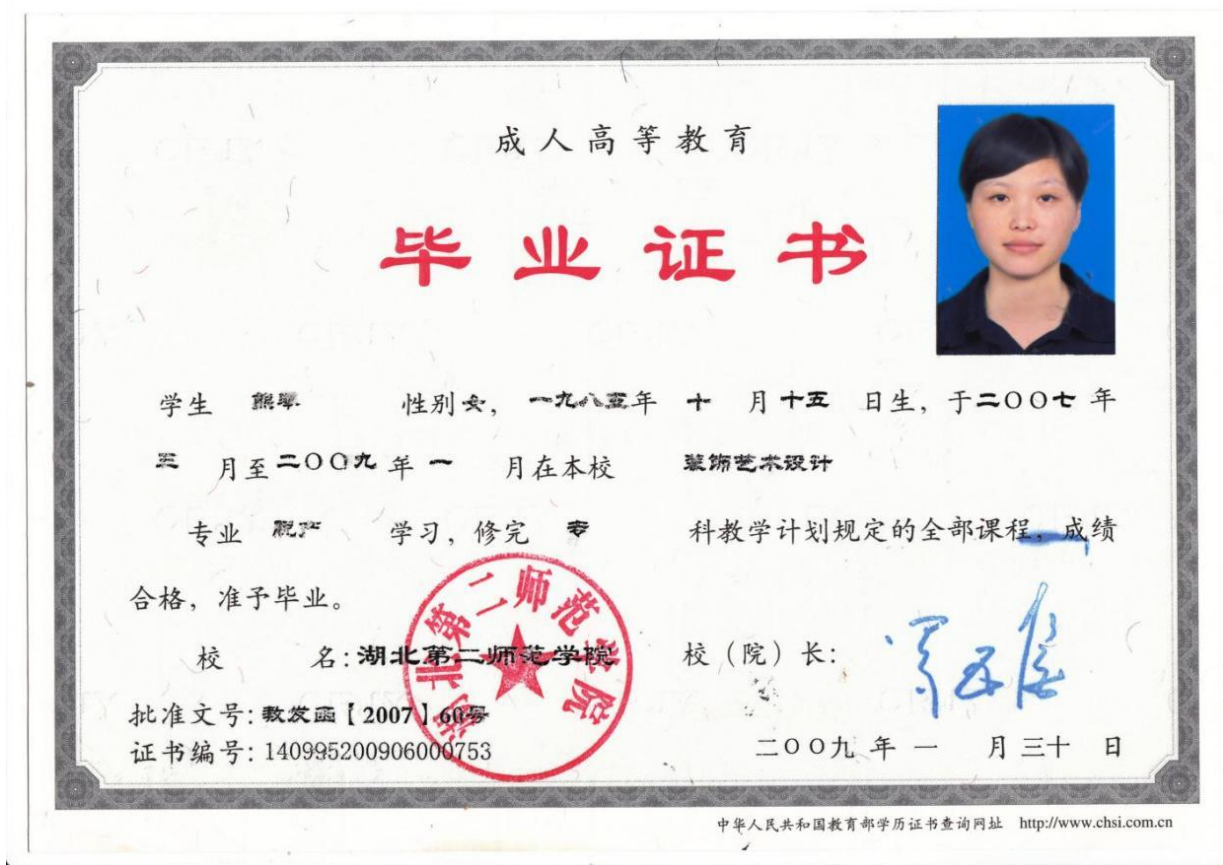 成人高等教育
毕业证书
学生 熊翠 性别 女, 一九八五年 十 月 十五 日生, 于二〇〇七 年
三 月至 二〇〇九 年 一 月在本校 装饰艺术设计
专业 脱产 学习, 修完 专 科教学计划规定的全部课程, 成绩
合格, 准予毕业。
校 名: 湖北第二师范学院 校(院)长:
湖北第二师范学院
批准文号: 教发函【2007】60号
证书编号: 140995200906000753
二〇〇九 年 一 月 三十 日
中华人民共和国教育部学历证书查询网址 http://www.chsi.com.cn